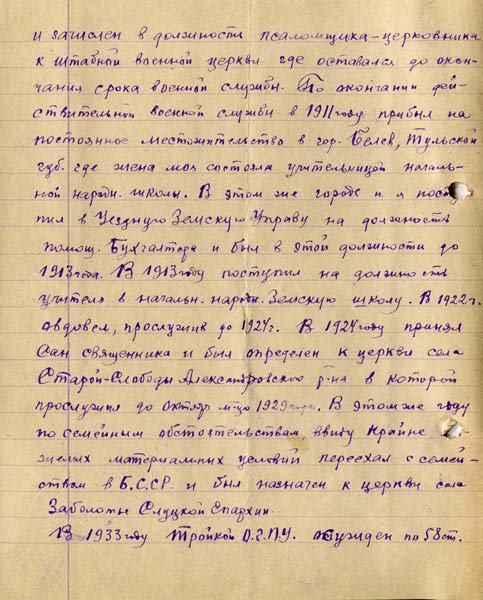 и зачислен в должности псаломщика-церковника
к штабной военной церкви где оставался до окон-
чания срока военной службы. По окончании дей-
ствительной военной службы в 1911 году прибыл на
постоянное местожительство в гор. Белев, Тульской
губ. где жена моя состояла учительницей началь-
ной народн. школы. В этом же городе и я посту-
пил в Уездную Земскую Управу на должность
помощ. Бухгалтера и был в этой должности до
1913 года. В 1913 году поступил на должность
учителя в начальн. народн. Земскую школу. В 1922 г.
овдовел, прослужив до 1924 г. В 1924 году принял
Сан священника и был определен к церкви села
Старой-Слободы Александровского р-на в которой
прослужил до октября м-ца 1929 года. В этом же году
по семейным обстоятельствам, ввиду крайне
желых материальных условий переехал с семей-
ством в Б.С.С.Р. и был назначен к церкви села
Заболоть Слуцкой Епархии.
В 1933 году Тройкой О.Г.П.У. осужден по 58 ст.